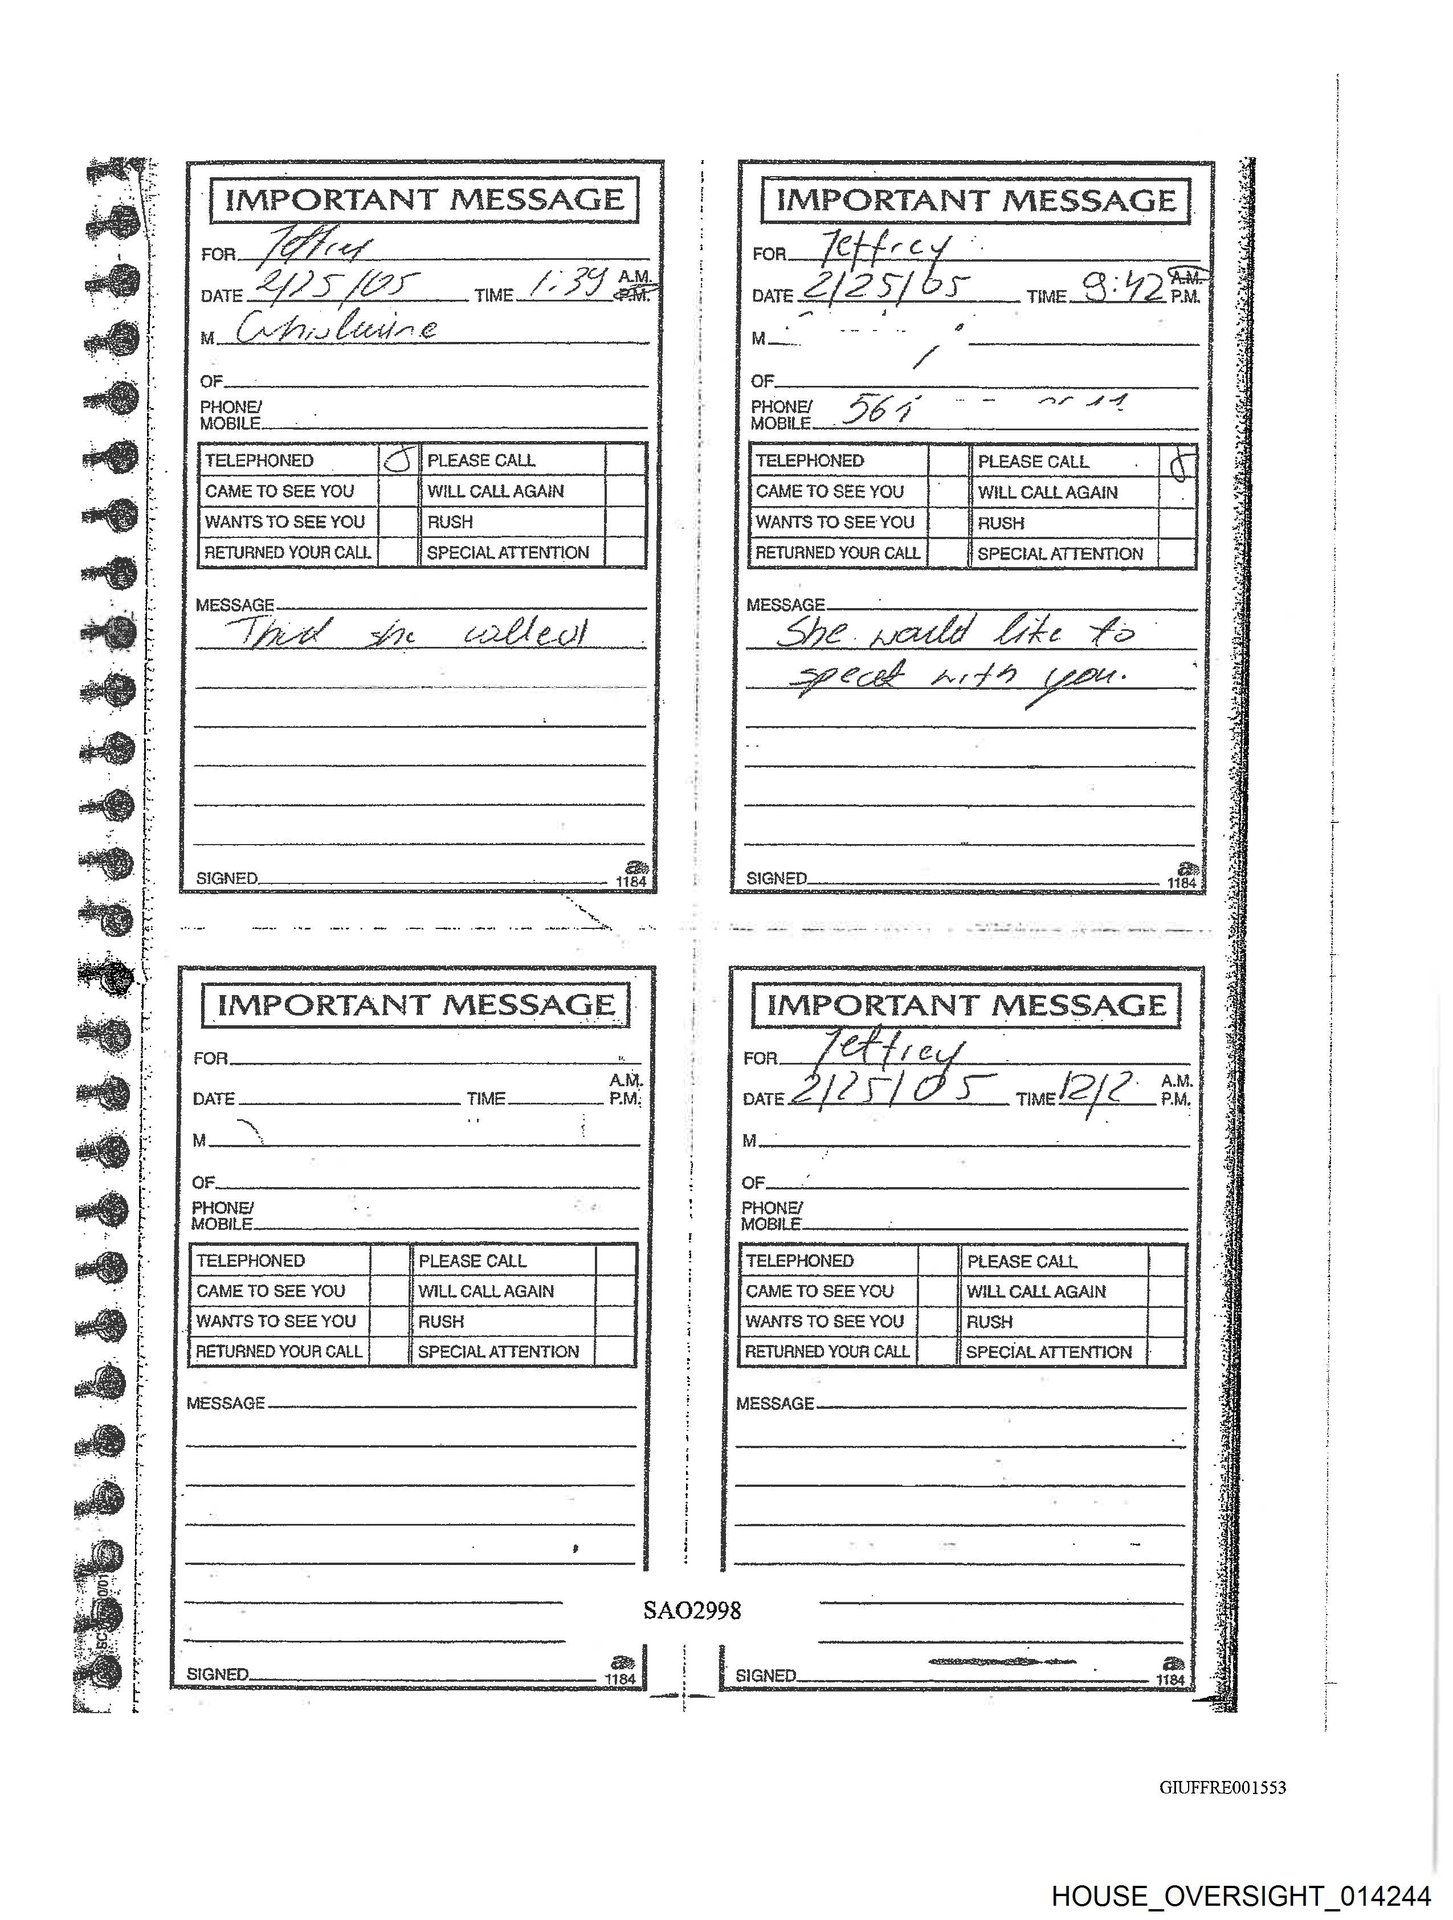 IMPORTANT MESSAGE
FOR Jeffrey
DATE 2/25/05 TIME 1:39 A.M. P.M.
M
OF
PHONE/ MOBILE
TELEPHONED PLEASE CALL
CAME TO SEE YOU WILL CALL AGAIN
WANTS TO SEE YOU RUSH
RETURNED YOUR CALL SPECIAL ATTENTION
MESSAGE
she called
SIGNED
1184
IMPORTANT MESSAGE
FOR Jeffrey
DATE 2/25/05 TIME 9:42 A.M. P.M.
M
OF
PHONE/ MOBILE 561
TELEPHONED PLEASE CALL
CAME TO SEE YOU WILL CALL AGAIN
WANTS TO SEE YOU RUSH
RETURNED YOUR CALL SPECIAL ATTENTION
MESSAGE
She would like to
with you.
SIGNED
1184
IMPORTANT MESSAGE
FOR
DATE TIME A.M. P.M.
M
OF
PHONE/ MOBILE
TELEPHONED PLEASE CALL
CAME TO SEE YOU WILL CALL AGAIN
WANTS TO SEE YOU RUSH
RETURNED YOUR CALL SPECIAL ATTENTION
MESSAGE
SIGNED
1184
IMPORTANT MESSAGE
FOR Jeffrey
DATE 2/25/05 TIME 12/2 A.M. P.M.
M
OF
PHONE/ MOBILE
TELEPHONED PLEASE CALL
CAME TO SEE YOU WILL CALL AGAIN
WANTS TO SEE YOU RUSH
RETURNED YOUR CALL SPECIAL ATTENTION
MESSAGE
SIGNED
1184
SAO2998
GIUFFRE001553
HOUSE_OVERSIGHT_014244